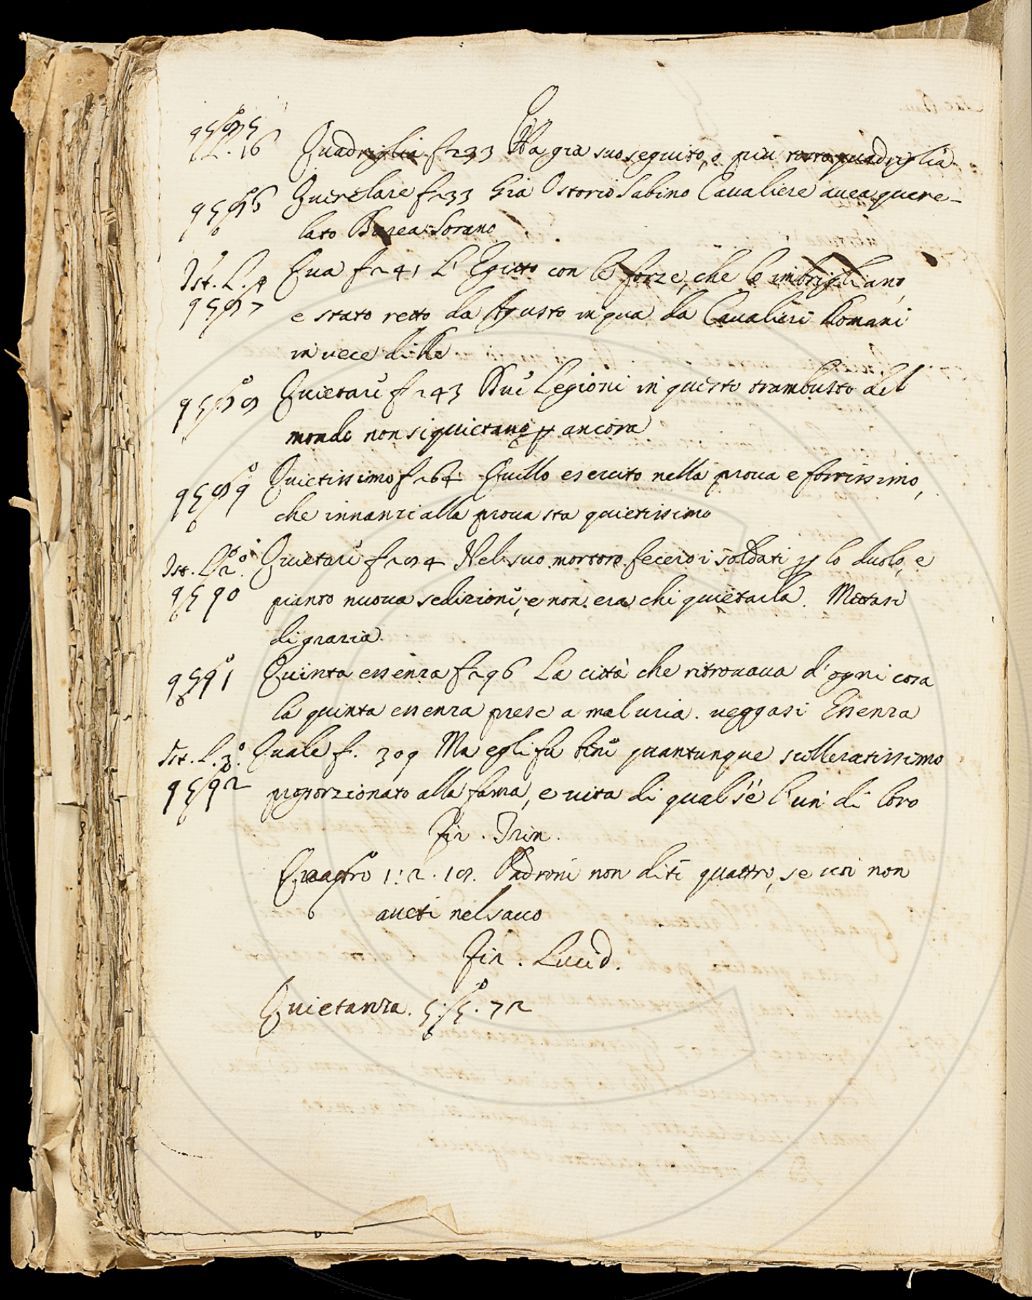 Q
L. 16 Quadriglia f. 233 Ha gia suo seguito, e più quadriglia
Querelare f. 233 Gia Ostorio Sabino Cavaliere avea quere-
lato Barea Sorano
Ist. L. p Qua f. 241 L'Egitto con le forze, che lo imbrigliano,
e stato retto da Agusto in qua da Cavalieri Romani
in vece di Re
Quietare f. 243 Due Legioni in questo trambusto del
mondo non si quietano p ancora
Quietissimo f. 264 Quello esercito nella prova e fortissimo,
che innanzi alla prova sta quietissimo
Ist. L. 2º. Quietare f. 294 Nel suo mortoro fecero i soldati p lo duolo, e
pianto nuova sedizione, e non era chi quietarla. Mettasi
di grazia
Quinta essenza f. 296 La città che ritrovava d'ogni cosa
la quinta essenza prese a mal uria. veggasi Essenza
Ist. L. 3º. Quale f. 309 Ma egli fu fine quantunque scelleratissimo
proporzionato alla fama, e vita di qual s'è l'un di loro
Fir. Trin.
Quattro 1: 2. 19. Padroni non diti quattro, se voi non
aveti nel sacco
Fir. Lucid.
Quietanza. 5: 5. 72